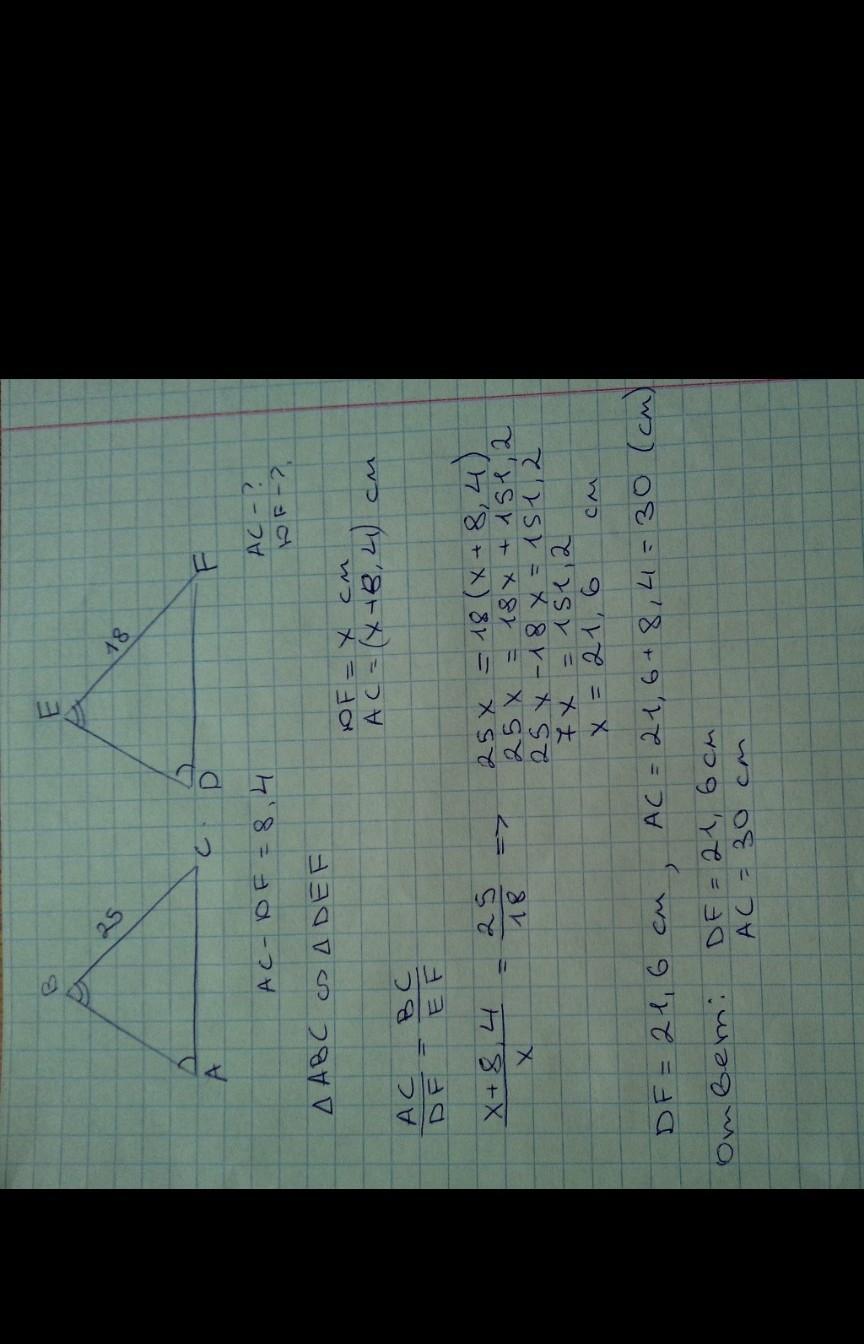 B E
25 18
A C D F
AC - DF = 8,4 AC - ?
DF - ?
Δ ABC ∽ Δ DEF
DF = x см
AC = (x+8,4) см
AC/DF = BC/EF
(x+8,4)/x = 25/18 => 25x = 18(x+8,4)
25x = 18x + 151,2
25x - 18x = 151,2
7x = 151,2
x = 21,6 см
DF = 21,6 см , AC = 21,6 + 8,4 = 30 (см)
Ответ: DF = 21,6 см
AC = 30 см